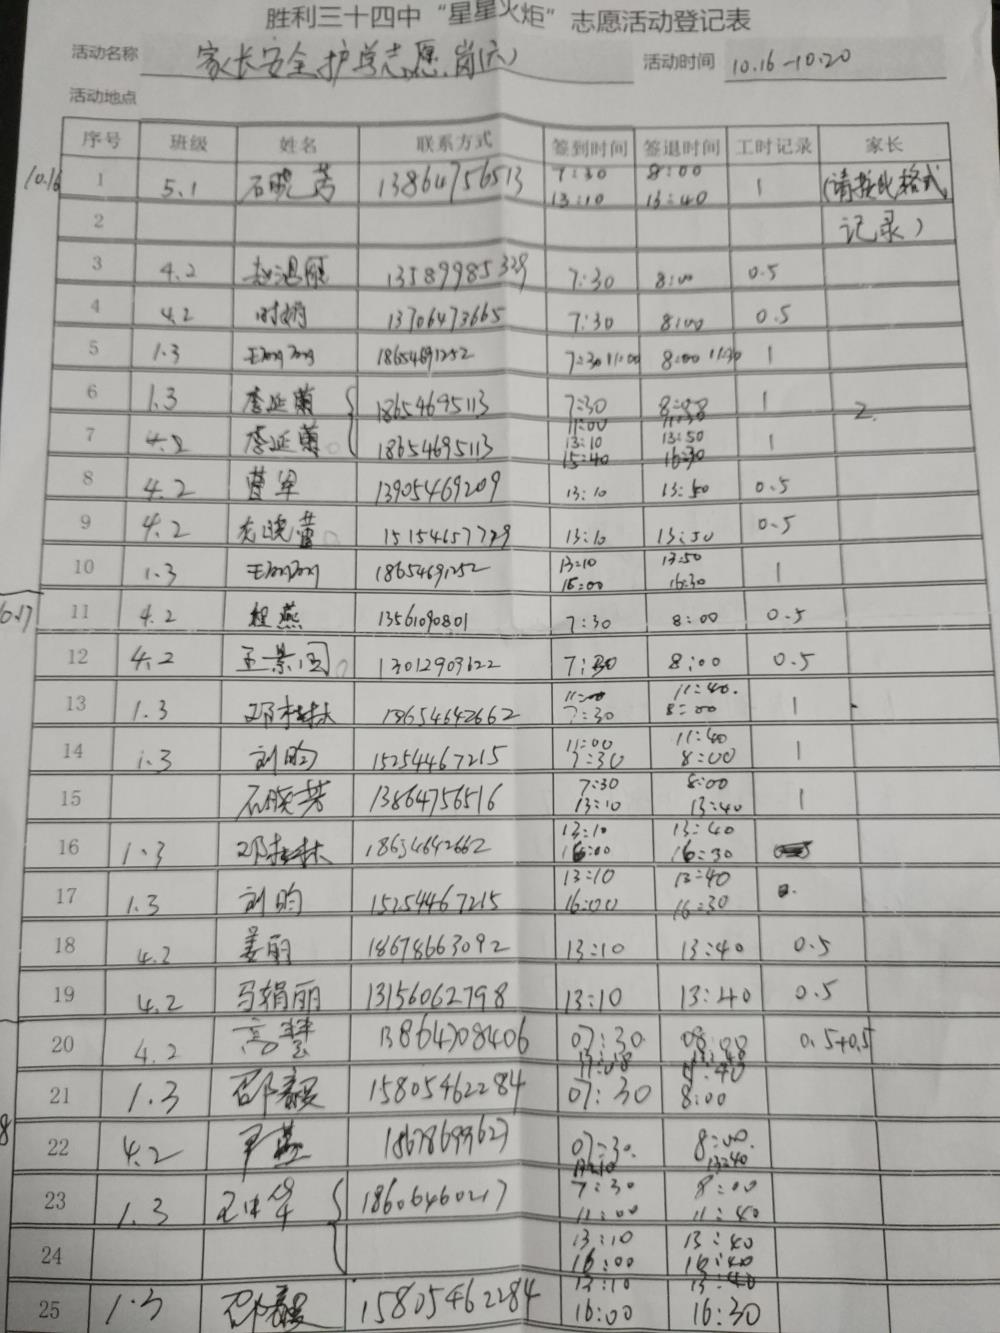 胜利三十四中“星星火炬”志愿活动登记表
活动名称 家长安全护学志愿岗(六) 活动时间 10.16-10.20
活动地点
序号 班级 姓名 联系方式 签到时间 签退时间 工时记录 家长
10.16 1 5.1 石晓芳 13864756513 7:30 13:10 8:00 13:40 1 (请按此格式
2 记录)
3 4.2 13589985329 7:30 8:00 0.5
4 4.2 时娟 13706473665 7:30 8:00 0.5
5 1.3 18654691252 7:30 11:00 8:00 11:30 1
6 1.3 李延菊 18654695113 7:30 11:00 8:00 11:30 1 2.
7 4.2 李延菊 18654695113 13:10 15:40 13:50 16:30 1
8 4.2 曹军 13905469209 13:10 13:50 0.5
9 4.2 15154657729 13:10 13:50 0.5
10 1.3 18654691252 13:10 16:00 13:50 16:30 1
11 4.2 程燕 13561090801 7:30 8:00 0.5
12 4.2 王景国 13012909622 7:30 8:00 0.5
13 1.3 邓桂林 18654642662 11:00 7:30 11:40. 8:00 1
14 1.3 刘昀 15254467215 11:00 7:30 11:40 8:00 1
15 石晓芳 13864756516 7:30 13:10 8:00 13:40 1
16 1.3 邓桂林 18654642662 13:10 16:00 13:40 16:30
17 1.3 刘昀 15254467215 13:10 16:00 13:40 16:30
18 4.2 姜丽 18678663092 13:10 13:40 0.5
19 4.2 马娟丽 13156062798 13:10 13:40 0.5
20 4.2 高慧 13864708406 07:30 08:00 13:40 0.5+0.5
21 1.3 邵 15805462284 07:30 8:00
22 4.2 尹燕 18678699627 07:30. 13:10 8:00. 13:40
23 1.3 王中华 18606460217 7:30 11:00 8:00 11:40
24 13:10 16:00 13:40 16:40
25 1.3 邵 15805462284 13:10 16:00 13:40 16:30